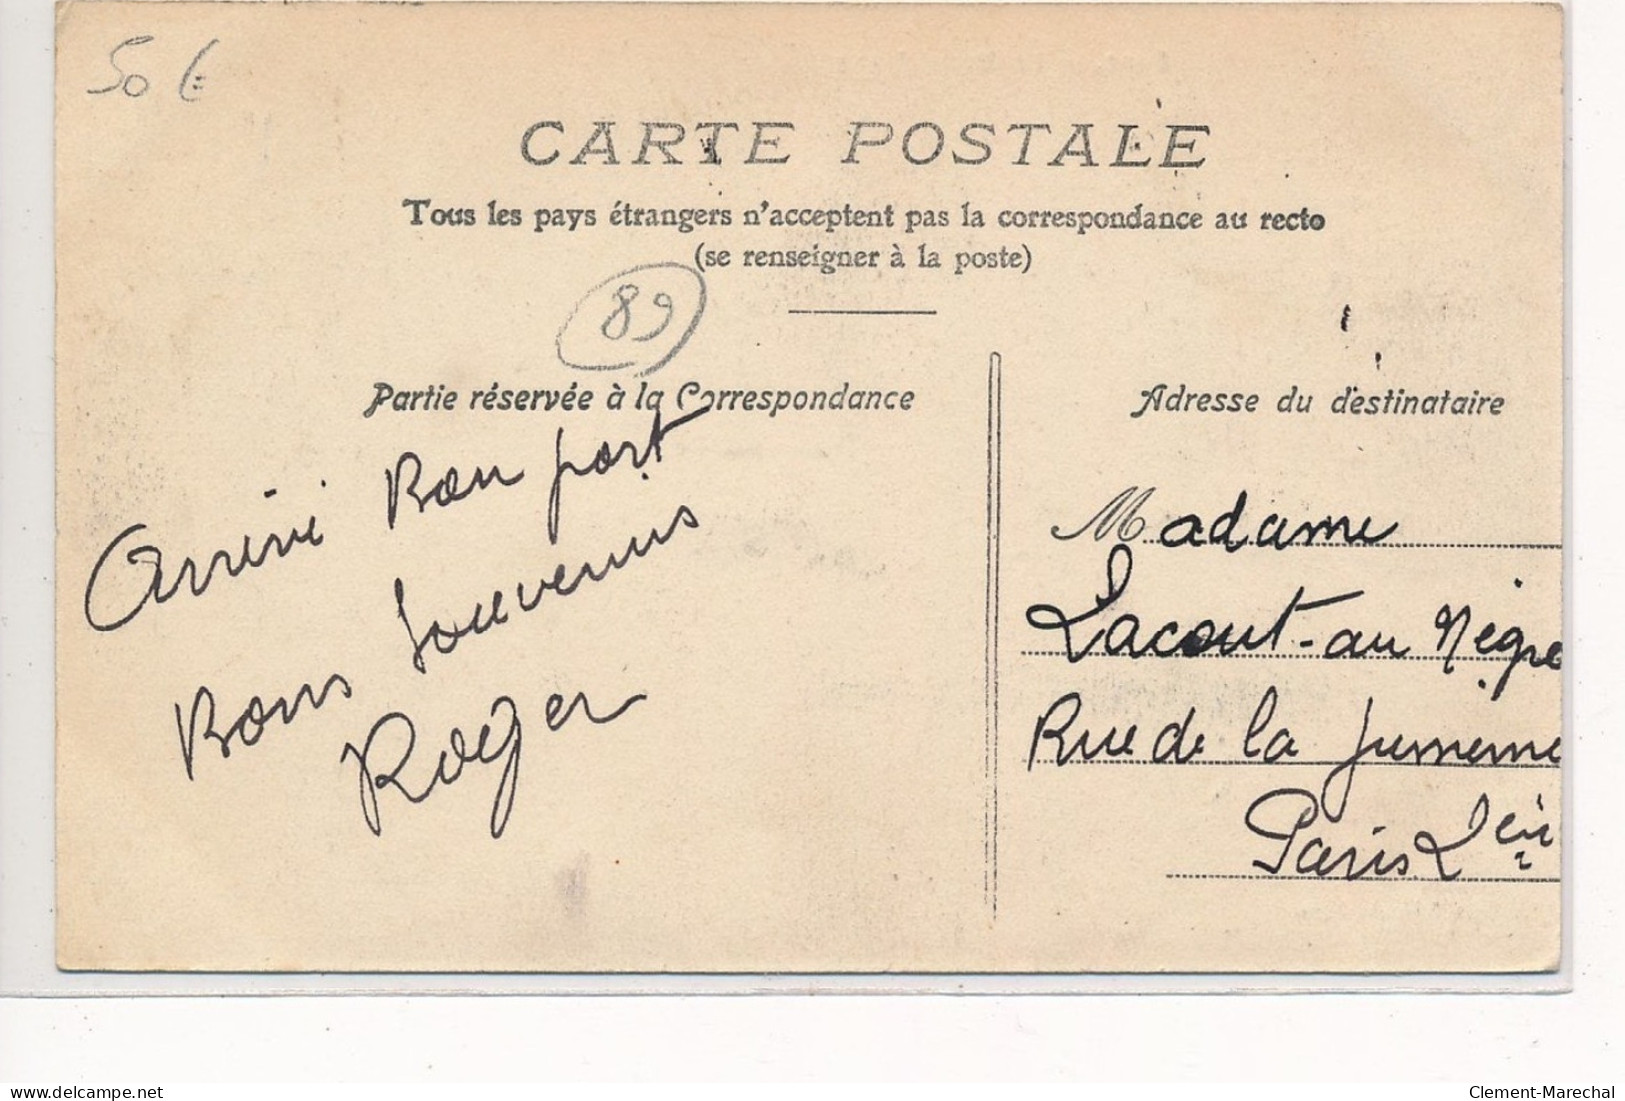 50 €
CARTE POSTALE
Tous les pays étrangers n'acceptent pas la correspondance au recto
(se renseigner à la poste)
89
Partie réservée à la Correspondance
Arrivé Bon port
Bons Souvenirs
Roger
Adresse du destinataire
Madame
Lacout-au Nègre
Rue de la
Paris 2
delcampe.net
Clement-Marechal